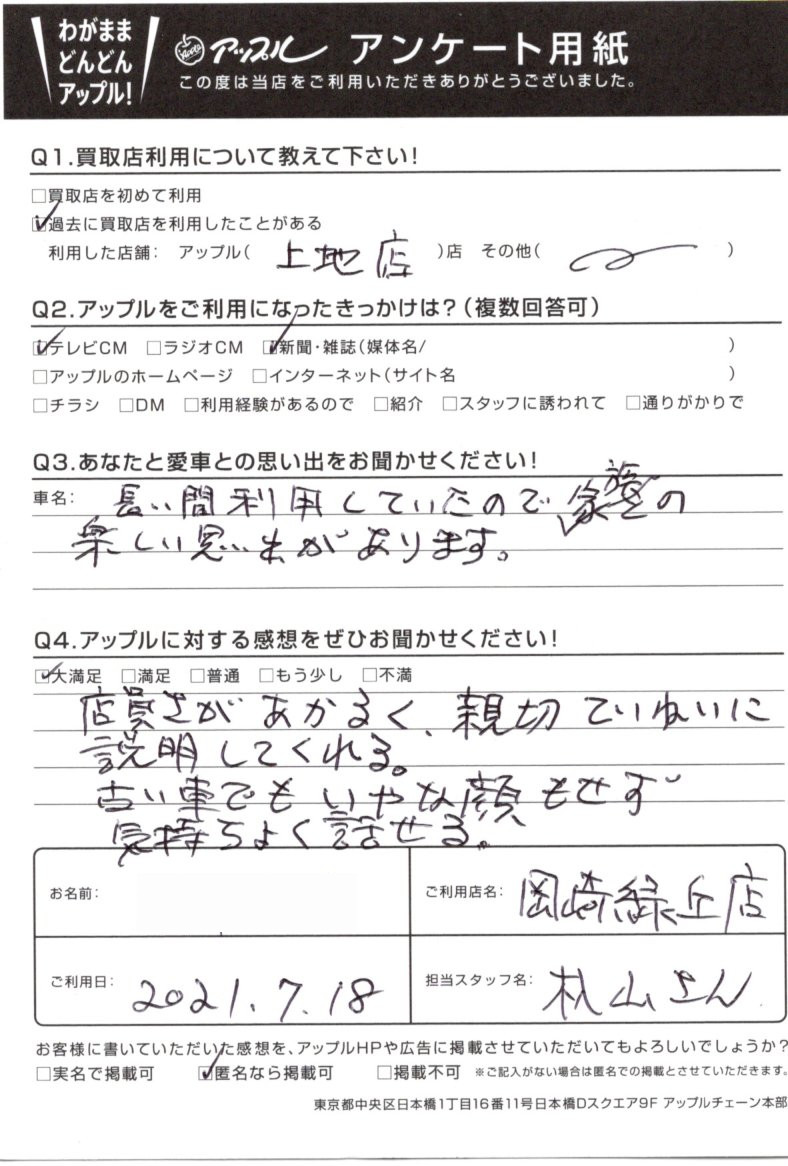 わがまま
どんどん
アップル!
Apple アップル アンケート用紙
この度は当店をご利用いただきありがとうございました。
Q1.買取店利用について教えて下さい!
□買取店を初めて利用
☑過去に買取店を利用したことがある
利用した店舗: アップル( 上地店 )店 その他( )
Q2.アップルをご利用になったきっかけは?(複数回答可)
☑テレビCM □ラジオCM ☑新聞・雑誌(媒体名/ )
□アップルのホームページ □インターネット(サイト名 )
□チラシ □DM □利用経験があるので □紹介 □スタッフに誘われて □通りがかりで
Q3.あなたと愛車との思い出をお聞かせください!
車名: 長い間利用していたので家族の
楽しい思い出があります。
Q4.アップルに対する感想をぜひお聞かせください!
☑大満足 □満足 □普通 □もう少し □不満
店員さがあかるく、親切ていねいに
説明してくれる。
古い車でもいやな顔もせず
気持ちよく話せる。
お名前: ご利用店名: 岡崎緑丘店
ご利用日: 2021.7.18 担当スタッフ名: 山さん
お客様に書いていただいた感想を、アップルHPや広告に掲載させていただいてもよろしいでしょうか?
□実名で掲載可 ☑匿名なら掲載可 □掲載不可 ※ご記入がない場合は匿名での掲載とさせていただきます。
東京都中央区日本橋1丁目16番11号日本橋Dスクエア9F アップルチェーン本部